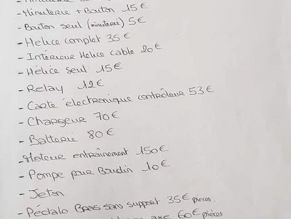 - Minuterie + Bouton 15€
- Bouton seul (minuterie) 5€
- Helice complet 35€
- Interieur Helice cable 20€
- Hélice seul 15€
- Relay 12€
- Carte électronique contrôleur 53€
- Chargeur 70€
- Batterie 80€
- Moteur entraînement 150€
- Pompe pour Boudin 10€
- Jeton
- Pédalo Bras sans support 35€ pièces
60€ pièces